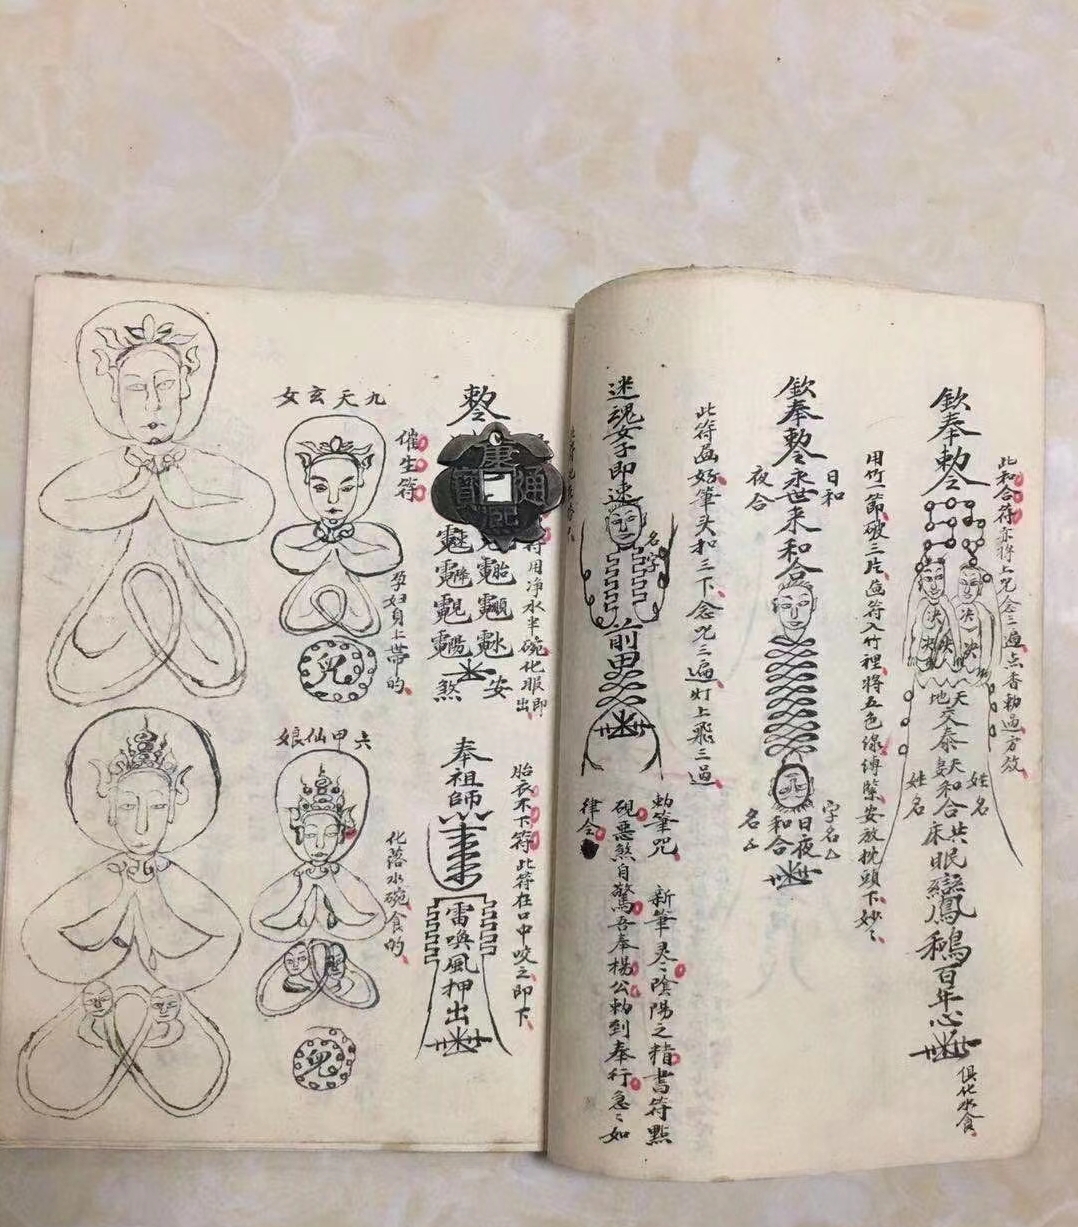 此和合符亦将上咒念三遍点香勅過方放
欽奉勅令
天地交泰夫和合共眠鸞鳳鵝百年心
姓名
姓名
床
俱化水食
用竹一節破三片画符入竹裡将五色線縛緊安放枕頭下妙々
欽奉勅令永世来和合
日和
夜合
日夜和合
字名
名
此符画好筆头扣三下念咒三遍灯上飛三過
迷魂女子即迷
名字
前男
勅筆咒
新筆灵々陰陽之精書符點
硯惡煞自驚吾奉楊公勅到奉行急々如
律令
勅令
康熙通寶
符用净水半碗化服即出
安
煞
胎衣不下符
此符在口中咬之即下
奉祖師
雷喚風押出
催生符
孕妇身上帶的
九天玄女
化落水碗食的
六甲仙娘